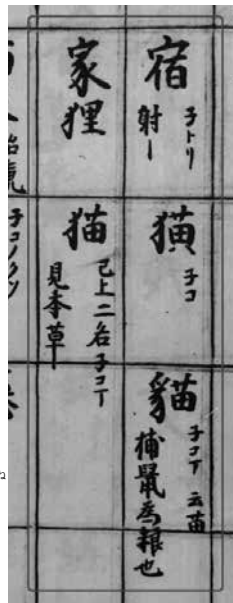 宿 子トリ
射ー
獚 子コ
貓 子コマ 云苗
捕鼠為粮也
家狸
猫 已上二名子コマ
見本草